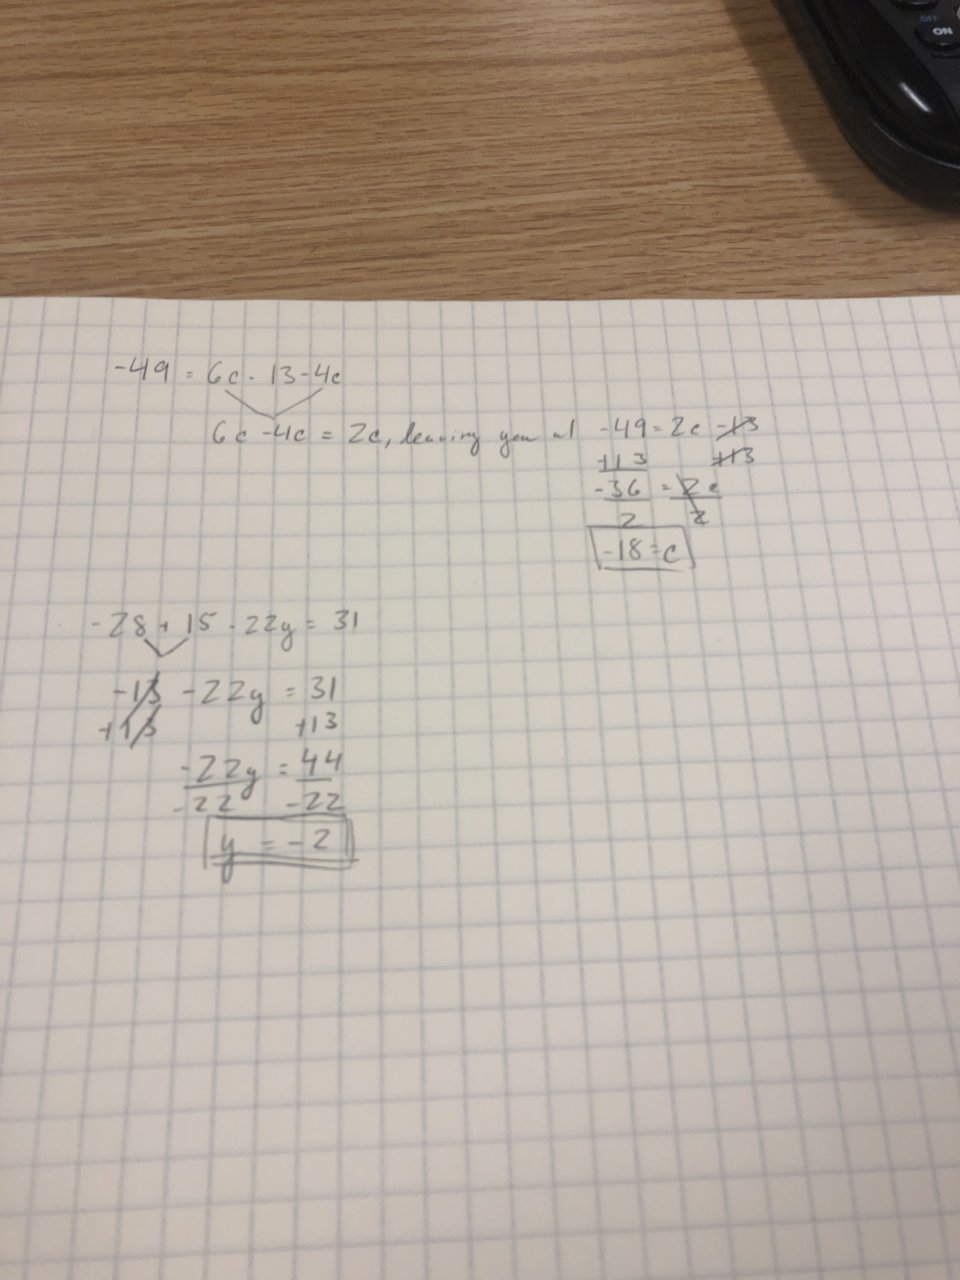 ON
-49 = 6c - 13 - 4c
6c - 4c = 2c, leaving you w/ -49 = 2c - 13
+13 +13
-36 = 2c
2 2
-18 = c
-28 + 15 - 22y = 31
-13 - 22y = 31
+13 +13
-22y = 44
-22 -22
y = -2